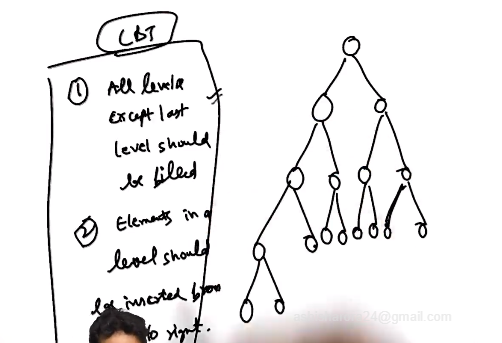 CBT
① All levels
Except last
level should
be filled
② Elements in a
level should
be inserted from
to right.
24@gmail.com